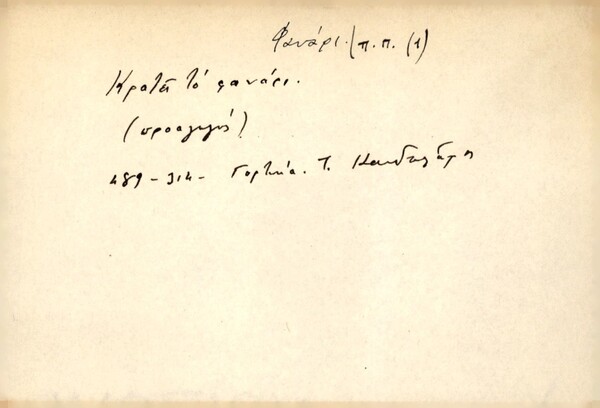 Φανάρι. / π.π. (1)
Κρατεῖ τό φανάρι.
(προαγωγός)
489 - 314 - Γορτυνία. Τ. Κανδηλώρη